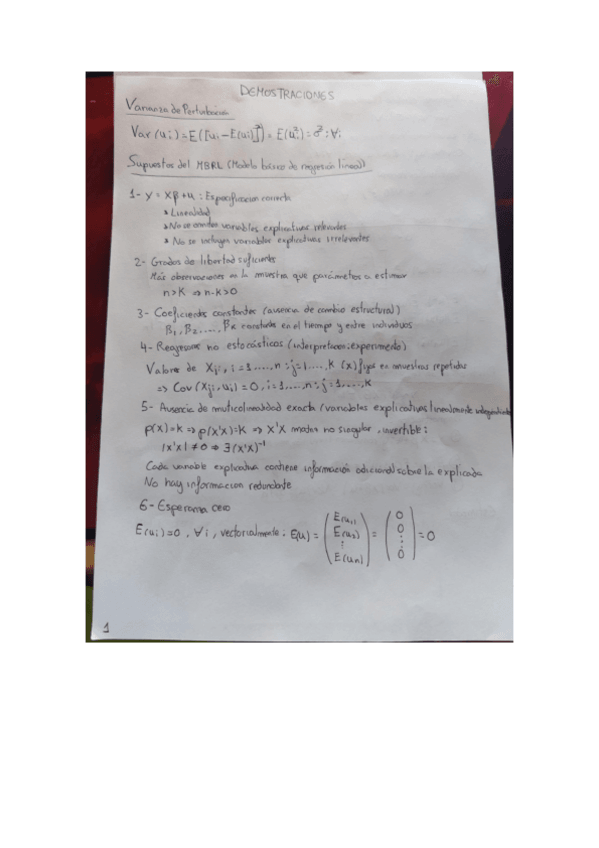 DEMOSTRACIONES
Varianza de Perturbación
Var(ui)=E([ui-E(ui)]²)=E(ui²)=σ²;∀i
Supuestos del MBRL (Modelo básico de regresión lineal)
1- Y = Xβ+u : Especificacion correcta
Linealidad
No se omiten variables explicativas relevantes
No se incluyen variables explicativas irrelevantes
2- Grados de libertad suficientes
Más observaciones en la muestra que parámetros a estimar
n>K ⇒ n-k>0
3- Coeficientes constantes (ausencia de cambio estructural)
β1, β2, ...., βk constante en el tiempo y entre individuos
4- Regresores no estocásticos (interpretacion: experimento)
Valores de Xji, i=1....,n ; j=1....,k (x) fijos en muestras repetidas
⇒ Cov(Xji, ui)=0, i=1....,n ; j=1....,k
5- Ausencia de muticolinealidad exacta (variables explicativas linealmente independientes
ρ(x)=k ⇒ ρ(x'x)=K ⇒ X'X matriz no singular, invertible:
|x'x| ≠ 0 ⇒ ∃(x'x)⁻¹
Cada variable explicativa contiene información adicional sobre la explicada
No hay informacion redundante
6- Esperanza cero
E(ui)=0, ∀i, vectorialmente: E(u) = (E(u1) E(u2) ⋮ E(un)) = (0 0 ⋮ 0) = 0
1